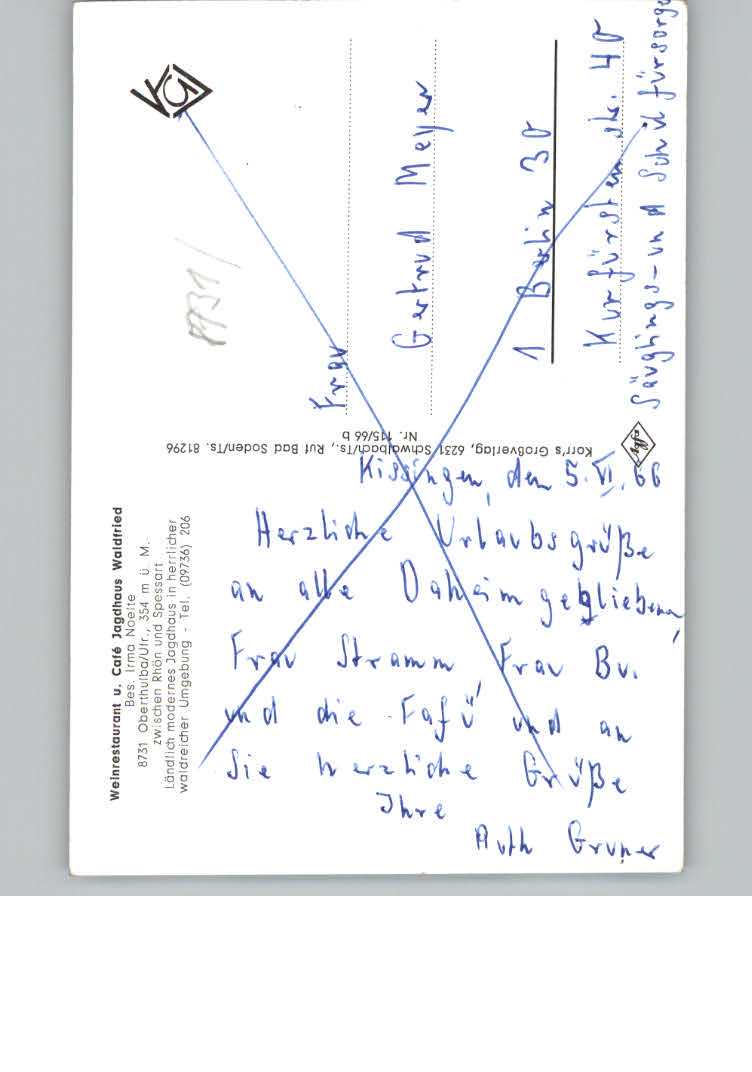 Weinrestaurant u. Café Jagdhaus Waldfried
Bes. Irma Noelte
8731 Oberthulba/Ufr., 354 m ü. M.
zwischen Rhön und Spessart
Ländlich modernes Jagdhaus in herrlicher
waldreicher Umgebung - Tel. (09736) 206
Kissingen, den 5. VI. 66
Herzliche Urlaubsgrüße
an alle Daheimgebliebenen,
Frau Stramm, Frau Bu.
und die "Fafü" und an
Sie herzliche Grüße
Ihre
Ruth Gruner
Korr's Großverlag, 6231 Schwalbach/Ts., Ruf Bad Soden/Ts. 81296
Nr. 115/66 b
8731/
Frau
Gertrud Meyer
1 Berlin 30
Kurfürstenstr. 40
Säuglings- und Schulfürsorge